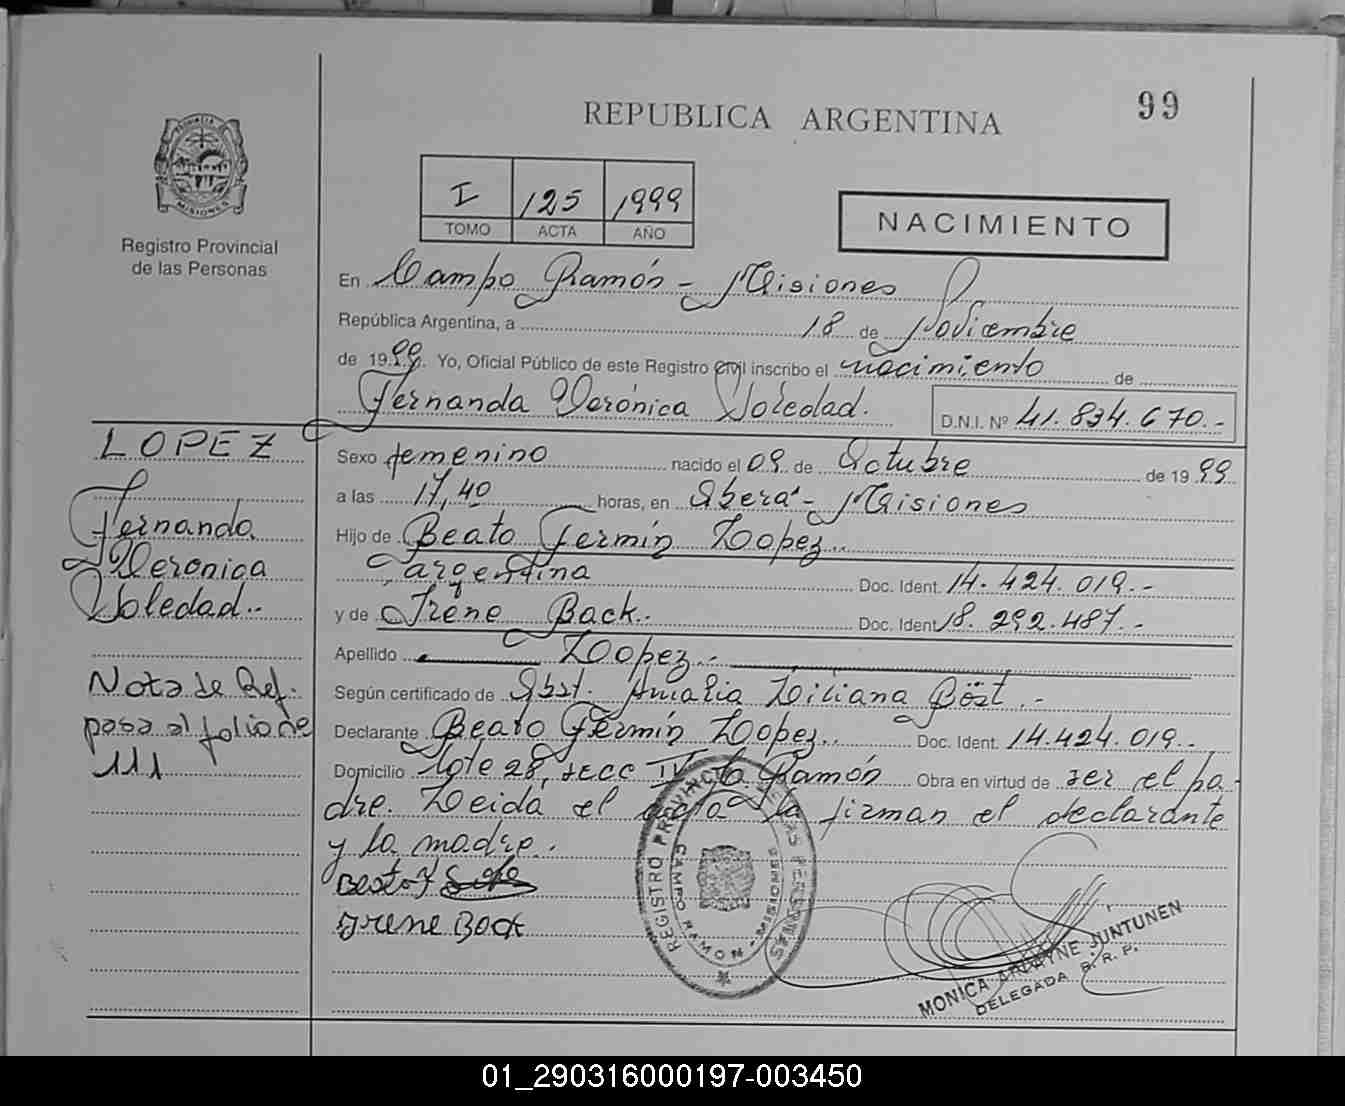 99
REPUBLICA ARGENTINA
PROVINCIA
MISIONES
Registro Provincial
de las Personas
I 125 1999
TOMO ACTA AÑO
NACIMIENTO
En Campo Ramón - Misiones
República Argentina, a 18 de Noviembre
de 1999. Yo, Oficial Público de este Registro Civil inscribo el nacimiento de
Fernanda Verónica Soledad.
D.N.I. Nº 41.834.670.-
LOPEZ
Fernanda
Veronica
Soledad..
Nota de Ref.
pasa al folio de
111
Sexo femenino nacido el 09 de Octubre de 1999
a las 17,40 horas, en Oberá - Misiones
Hijo de Beato Fermín Lopez..
argentina Doc. Ident. 14.424.019.-
y de Irene Back. Doc. Ident 18.292.487.-
Apellido Lopez.-
Según certificado de Obst. Amalia Liliana Böst.-
Declarante Beato Fermín Lopez.. Doc. Ident. 14.424.019.-
Domicilio Lote 28, secc IV, Ramón Obra en virtud de ser el pa-
dre. Leída el acta la firman el declarante
y la madre.
Irene Back
REGISTRO PROVINCIAL DE LAS PERSONAS
CAMPO RAMON - MISIONES
MONICA JUNTUNEN
DELEGADA R. R. P.
01_290316000197-003450